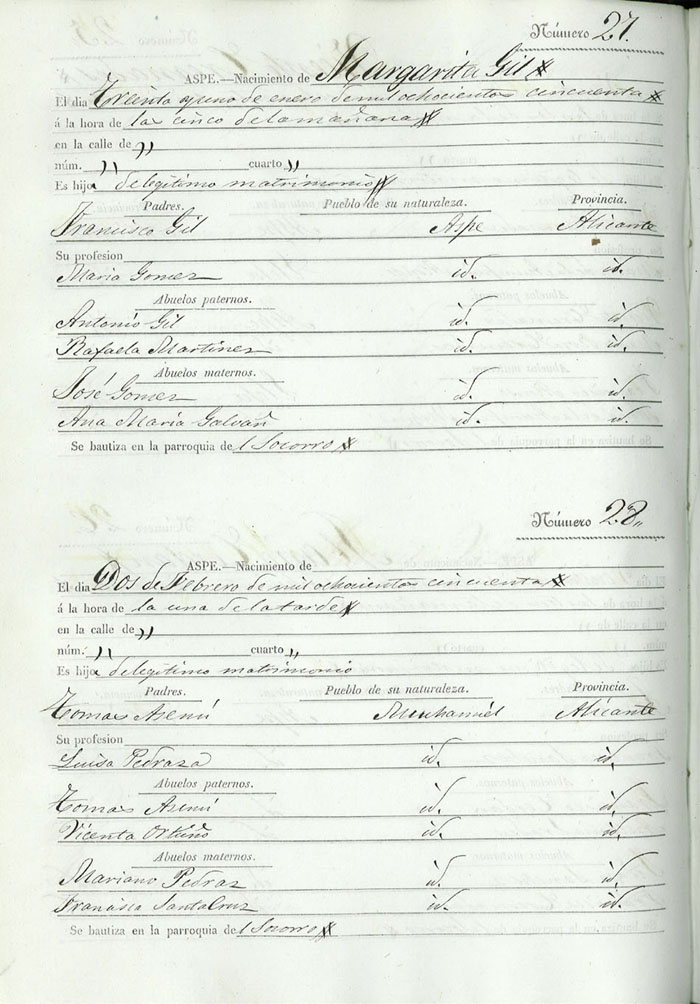 Número 27.
ASPE.—Nacimiento de Margarita Gil
El dia Treinta y uno de enero de mil ochocientos cincuenta
á la hora de las cinco de la mañana
en la calle de "
núm. " cuarto "
Es hija de legitimo matrimonio
Padres. Pueblo de su naturaleza. Provincia.
Francisco Gil Aspe Alicante
Su profesion
Maria Gomez id. id.
Abuelos paternos.
Antonio Gil id. id.
Rafaela Martinez id. id.
Abuelos maternos.
José Gomez id. id.
Ana Maria Galvañ id. id.
Se bautiza en la parroquia del Socorro
Número 28.
ASPE.—Nacimiento de
El dia Dos de Febrero de mil ochocientos cincuenta
á la hora de la una de la tarde
en la calle de "
núm. " cuarto "
Es hij de legitimo matrimonio
Padres. Pueblo de su naturaleza. Provincia.
Tomas Asenú Muchamiél Alicante
Su profesion
Luisa Pedraza id. id.
Abuelos paternos.
Tomas Asenú id. id.
Vicenta id. id.
Abuelos maternos.
Mariano Pedraz id. id.
Francisca SantaCruz id. id.
Se bautiza en la parroquia del Socorro